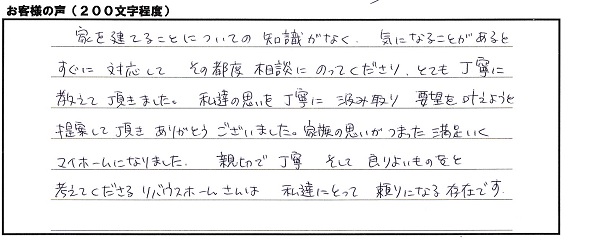 お客様の声（２００文字程度）
家を建てることについての知識がなく、気になることがあると
すぐに対応して その都度 相談にのってくださり、とても丁寧に
教えて頂きました。私達の思いを丁寧に汲み取り 要望を叶えようと
提案して頂き ありがとうございました。家族の思いがつまった満足いく
マイホームになりました。親切で丁寧 そして 良りよいものをと
考えてくださるリバウスホームさんは 私達にとって 頼りになる存在です。